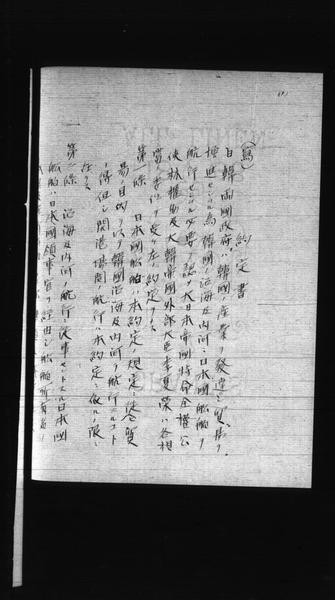 (寫)
約定書
日韓両國政府ハ韓國ノ産業ヲ發達シ貿易ヲ
増進センカ為韓國ノ沿海及内河ニ日本國船舶ノ
航行セシムル必要ヲ認メ大日本帝國特命全權公
使林權助及大韓帝國外部大臣李夏榮ハ各相
當ノ委任ヲ受ケ左ノ約定ヲナス
第一條 日本國船舶ハ本約定ノ規定ニ從ヒ貿
易ノ目的ヲ以テ韓國沿海及内河ヲ航行スルコト
ヲ得但シ開港場間航行ハ本約定ニ依ルノ限ニ
在ラス
第二條 沿海及内河ノ航行ニ從事セントスル日本國
船舶ハ日本國領事官ヲ經由シ船舶所有者ノ